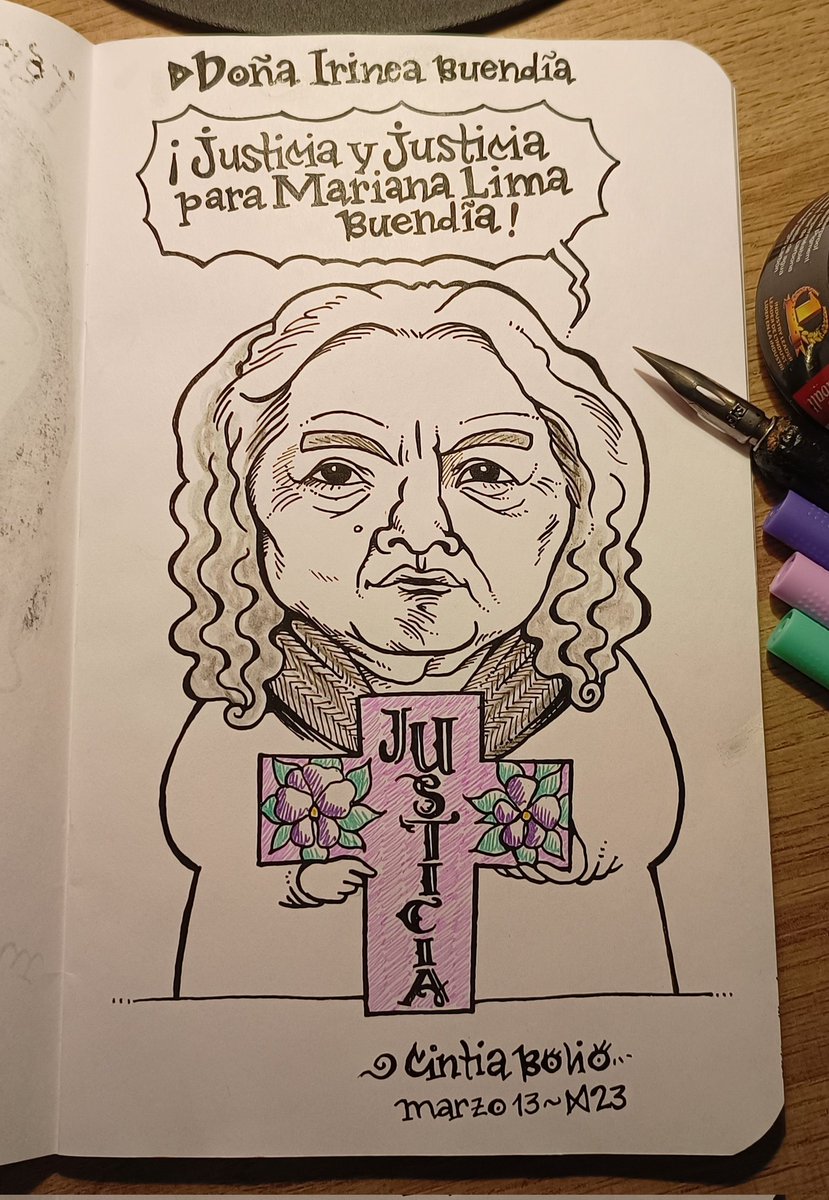 Doña Irinea Buendía
¡Justicia y Justicia
para Mariana Lima
Buendía!
JUSTICIA
Cintia Bolio...
marzo 13~23